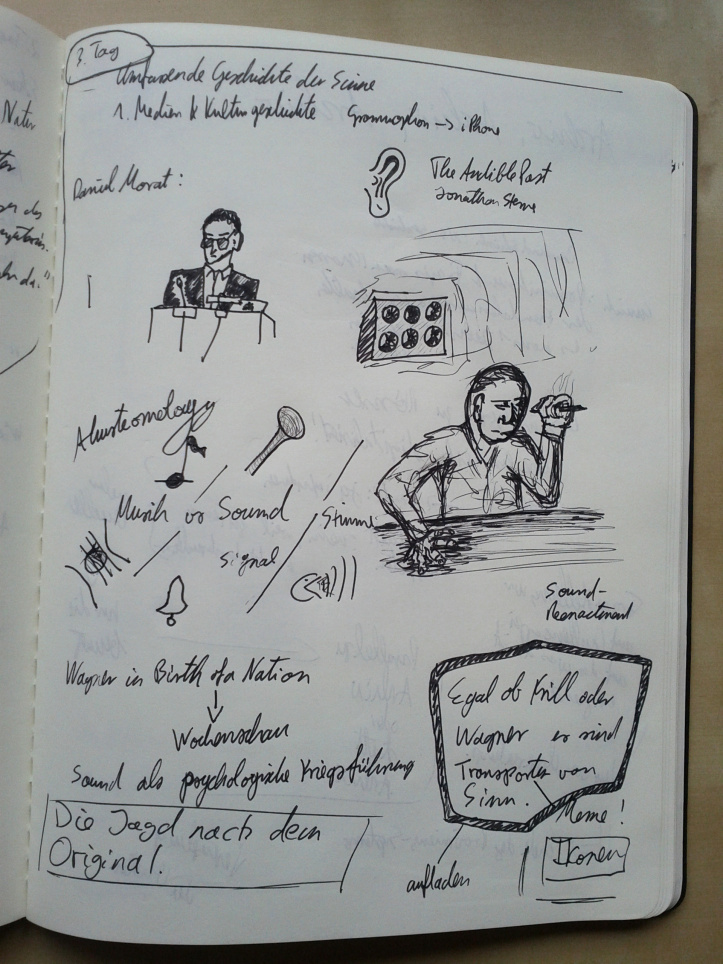 ? Tag
Umfassende Geschichte der Sinne
1. Medien & Kulturgeschichte Grammophon → iPhone
Daniel Morat:
The Audible Past
Jonathan Sterne
Akusteomology
Musik vs Sound
Stimme
Signal
Sound-
Reenactment
Wagner in Birth of a Nation
↓
Wochenschau
Sound als psychologische Kriegsführung
Egal ob Krill oder
Wagner es sind
Transporter von
Sinn.
Meme!
Die Jagd nach dem
Original.
aufladen
Ikonen